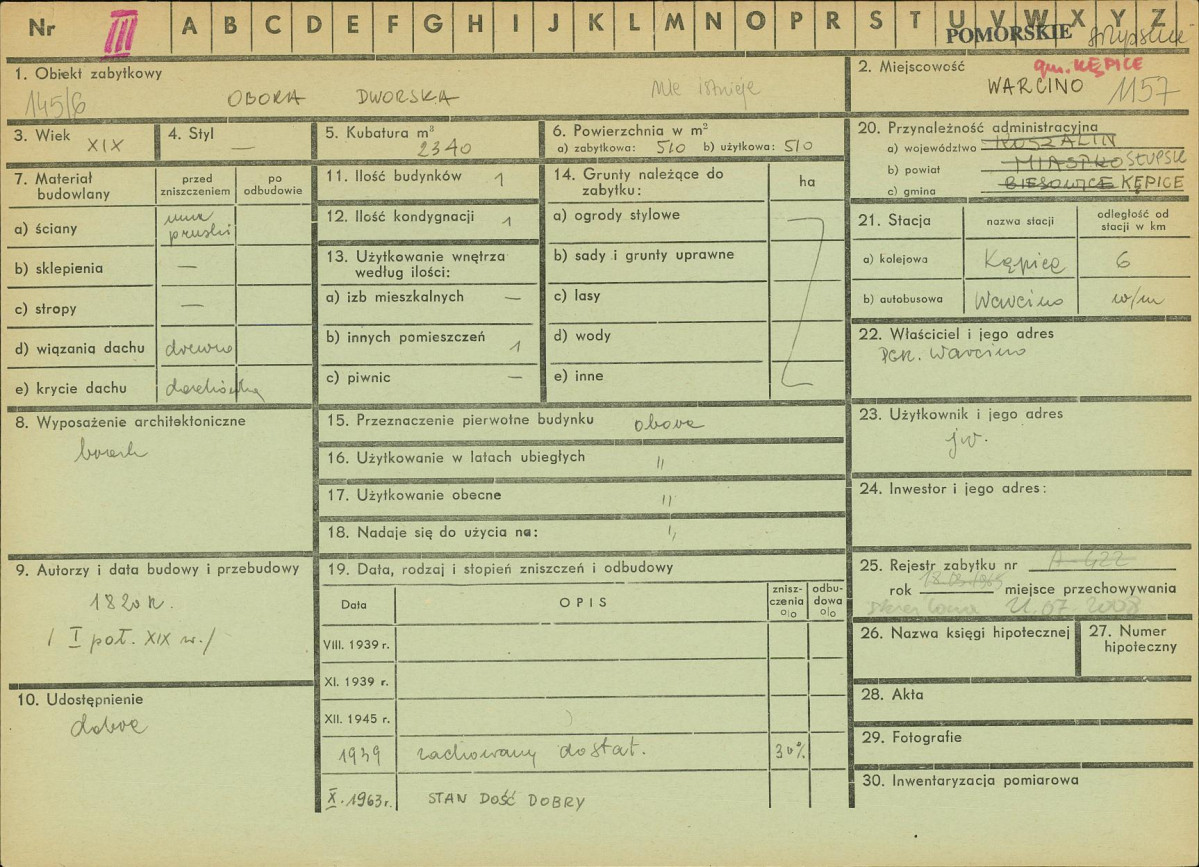 Nr III A B C D E F G H I J K L M N O P R S T U V W X Y Z
POMORSKIE
1. Obiekt zabytkowy
145/6 OBORA DWORSKA nie istnieje
2. Miejscowość gm. KĘPICE
WARCINO 1157
3. Wiek XIX
4. Styl —
5. Kubatura m³
2340
6. Powierzchnia w m²
a) zabytkowa: 510 b) użytkowa: 510
20. Przynależność administracyjna
a) województwo KOSZALIN
b) powiat MIASTKO SŁUPSK
c) gmina BIESOWICE KĘPICE
7. Materiał budowlany
przed zniszczeniem
po odbudowie
a) ściany mur pruski
b) sklepienia —
c) stropy —
d) wiązania dachu drewno
e) krycie dachu dachówka
11. Ilość budynków 1
12. Ilość kondygnacji 1
13. Użytkowanie wnętrza
według ilości:
a) izb mieszkalnych —
b) innych pomieszczeń 1
c) piwnic —
14. Grunty należące do
zabytku:
ha
a) ogrody stylowe
b) sady i grunty uprawne
c) lasy
d) wody
e) inne
21. Stacja
nazwa stacji
odległość od
stacji w km
a) kolejowa Kępice 6
b) autobusowa Warcino w/m
22. Właściciel i jego adres
PGR. Warcino
8. Wyposażenie architektoniczne
brak
15. Przeznaczenie pierwotne budynku obora
16. Użytkowanie w latach ubiegłych "
17. Użytkowanie obecne "
18. Nadaje się do użycia na: "
23. Użytkownik i jego adres
jw.
24. Inwestor i jego adres:
9. Autorzy i data budowy i przebudowy
1820 r.
/ I poł. XIX w./
19. Data, rodzaj i stopień zniszczeń i odbudowy
Data
OPIS
znisz-
czenia
%
odbu-
dowa
%
VIII. 1939 r.
XI. 1939 r.
XII. 1945 r.
1939 zachowany dostat. 30%
X. 1963 r. STAN DOŚĆ DOBRY
25. Rejestr zabytku nr A-422
rok miejsce przechowywania
skreślona 21.07.2008
26. Nazwa księgi hipotecznej
27. Numer
hipoteczny
10. Udostępnienie
dobre
28. Akta
29. Fotografie
30. Inwentaryzacja pomiarowa